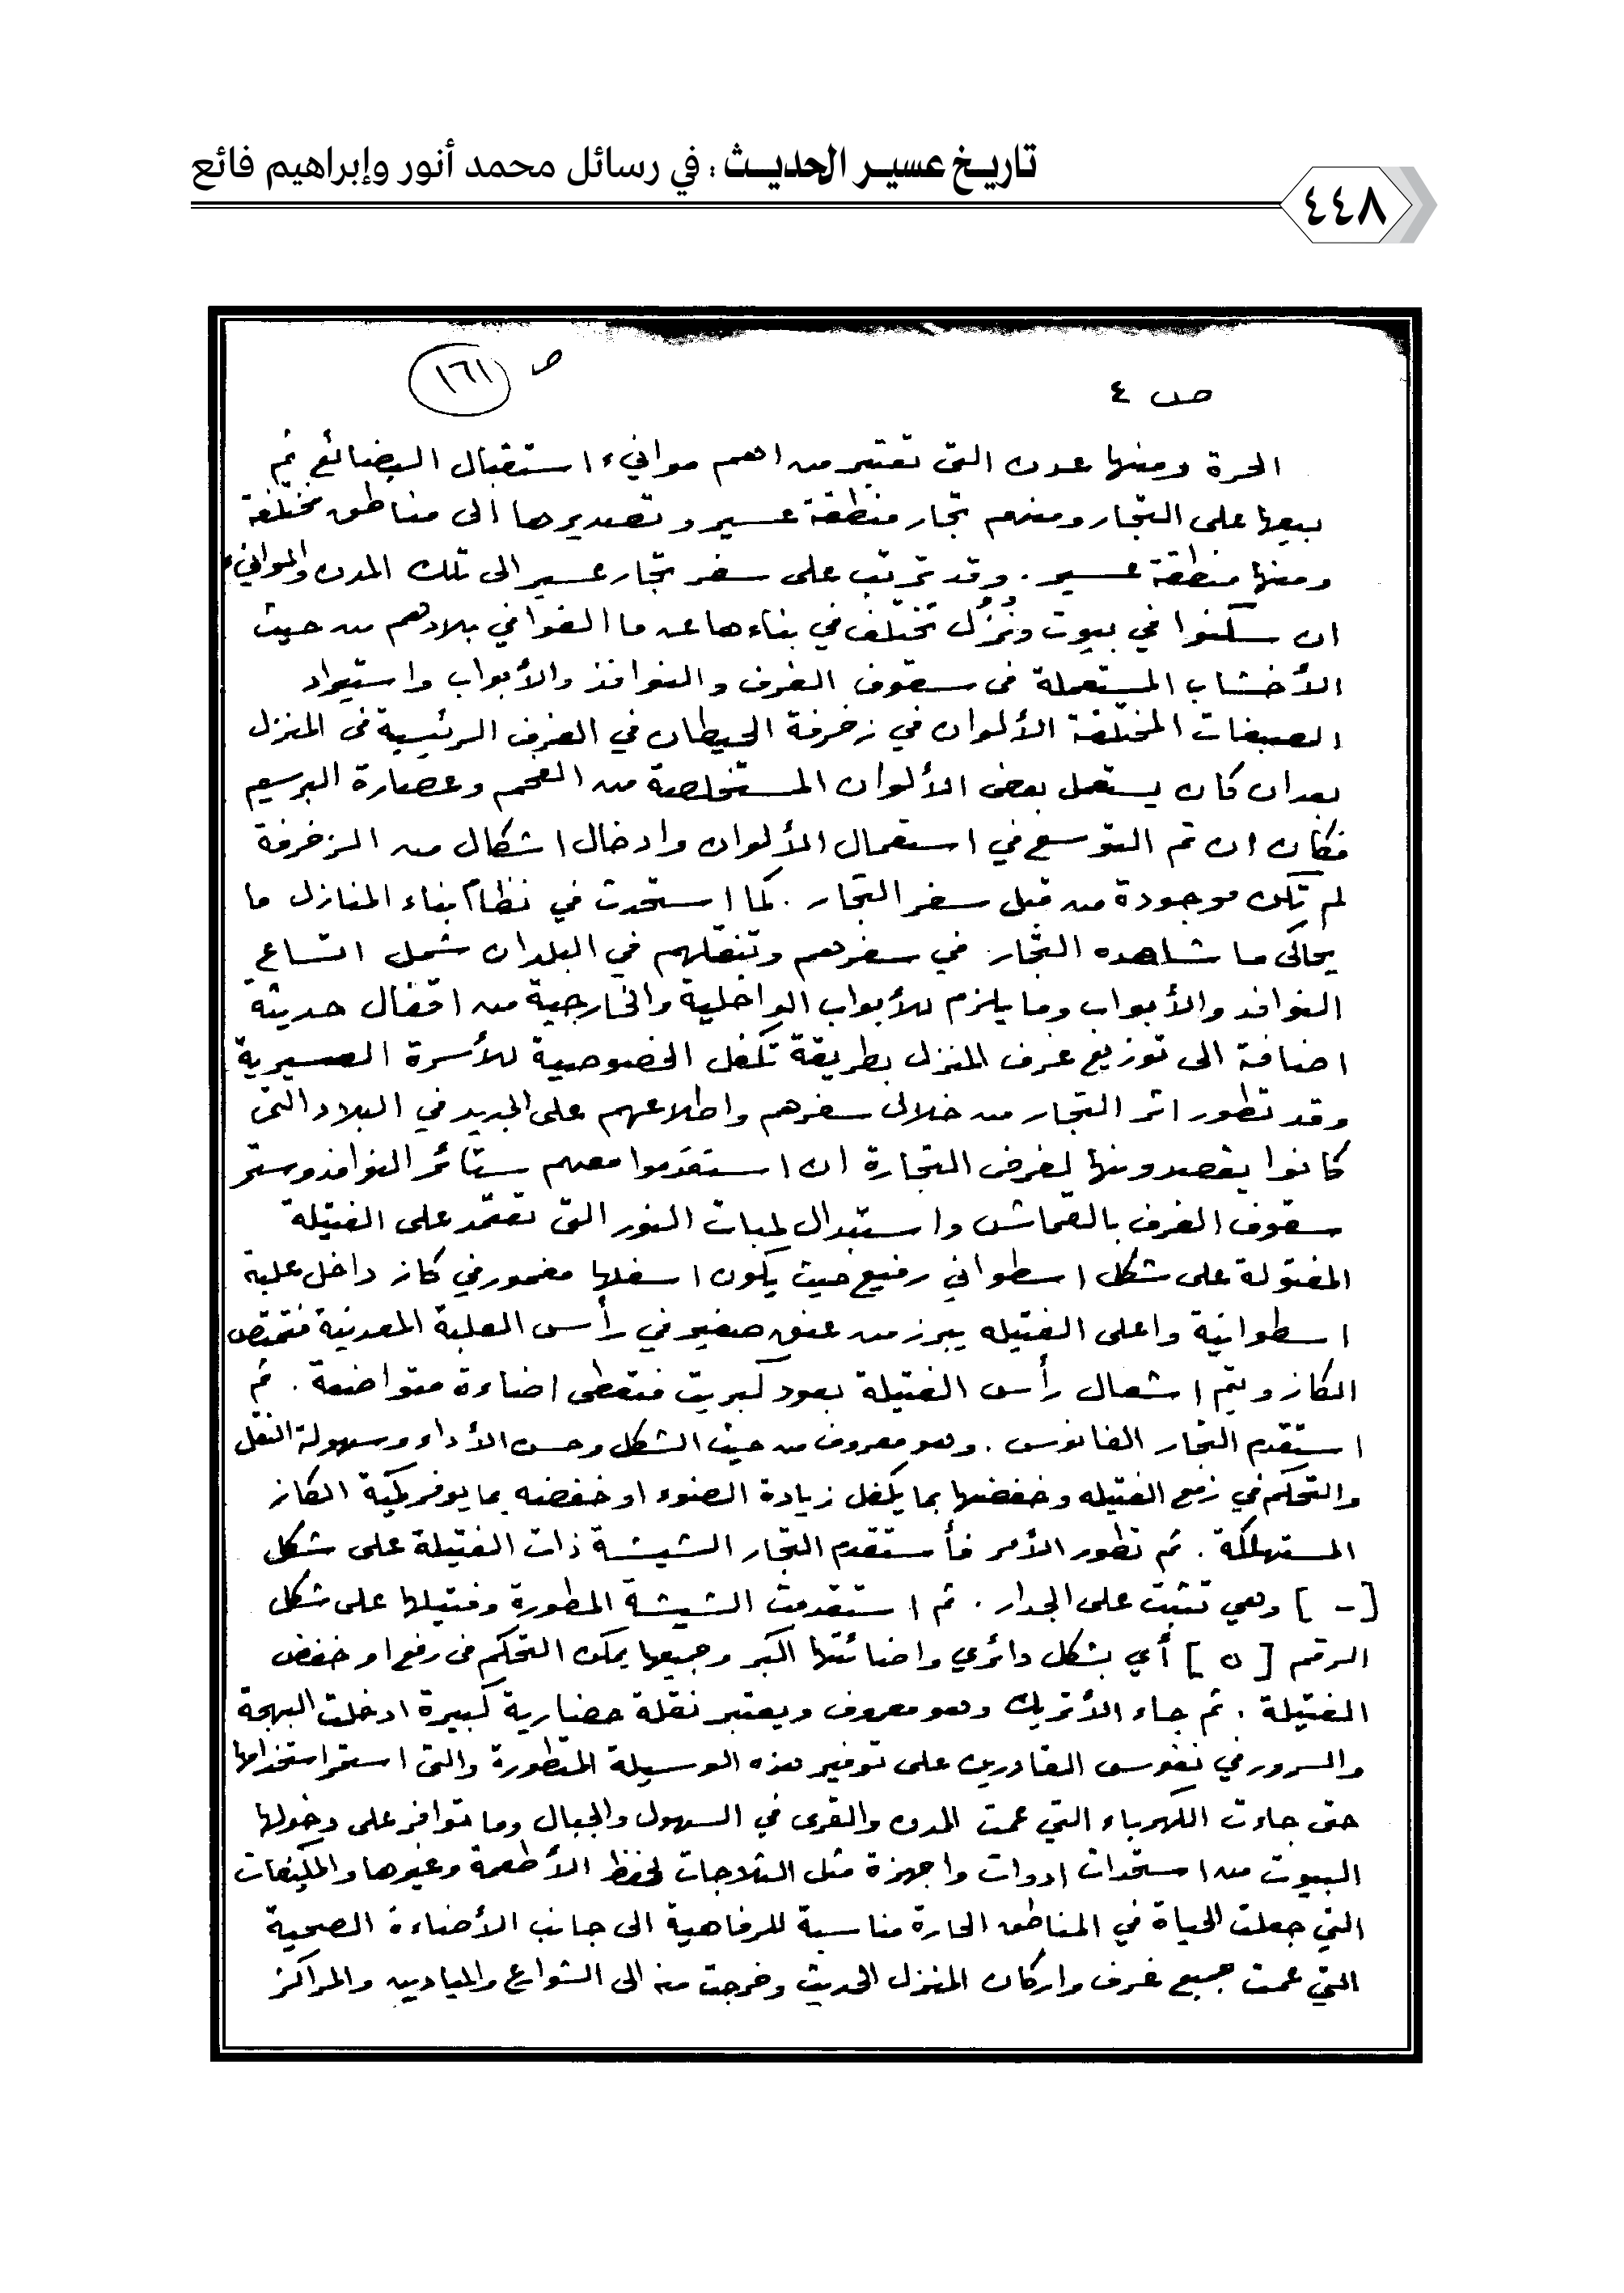 تاريخ عسير الحديث : في رسائل محمد أنور وإبراهيم فائع
٤٤٨
ص ١٦١
ص ٤
الحرة ومنها عدن التي تعتبر من اهم موانيء استقبال البضائع ثم
بيعها على التجار ومنهم تجار منطقة عسير وتصديرها الى مناطق مختلفة
ومنها منطقة عسير . وقد ترتب على سفر تجار عسير الى تلك المدن والموانيء
ان سكنوا في بيوت ونُزُل تختلف في بناءها عن ما الفوا في بلادهم من حيث
الأخشاب المستعملة في سقوف الغرف والنوافذ والأبواب واستيراد
الصبغات المختلفة الألوان في زخرفة الحيطان في الغرف الرئيسية في المنزل
بعد ان كان يستعمل بعض الألوان المستخلصة من الفحم وعصارة البرسيم
فكان ان تم التوسع في استعمال الألوان وادخال اشكال من الزخرفة
لم تكن موجودة من قبل سفر التجار . كما استحدث في نظام بناء المنازل ما
يحاكى ما شاهده التجار في سفرهم وتنقلهم في البلدان شمل اتساع
النوافد والأبواب وما يلزم للأبواب الداخلية والخارجية من اقفال حديثة
اضافة الى توزيع غرف المنزل بطريقة تكفل الخصوصية للأسرة العسيرية
وقد تطور اثر التجار من خلال سفرهم واطلاعهم على الجديد في البلاد التي
كانوا يقصدونها لغرض التجارة ان استقدموا معهم ستائر النوافذ وستر
سقوف الغرف بالقماش واستبدال لمبات النور التي تعتمد على الفتيلة
المفتولة على شكل اسطواني رفيع حيث يكون اسفلها مغمور في كاز داخل علبة
اسطوانية واعلى الفتيله يبرز من عنق صغير في رأس العلبة المعدنية فتمتص
الكاز ويتم اشعال رأس الفتيلة بعود كبريت فتعطى اضاءة متواضعة . ثم
استقدم التجار الفانوس . وهو معروف من حيث الشكل وحسن الأداء وسهولة النقل
والتحكم في رفع الفتيله وخفضها بما يكفل زيادة الضوء او خفضه بما يوفر كمية الكاز
المستهلكة . ثم تطور الأمر فأستقدم التجار الشيشة ذات الفتيلة على شكل
[ - ] وهي تثبت على الجدار . ثم استقدمت الشيشة المطورة وفتيلها على شكل
الرقم [ ٥ ] أي بشكل دائري واضائتها اكبر وجميعها يمكن التحكم في رفع او خفض
الفتيلة . ثم جاء الأتريك وهو معروف ويعتبر نقلة حضارية كبيرة ادخلت البهجة
والسرور في نفوس القادرين على توفير هذه الوسيلة المتطورة والتي استمر استخدامها
حتى جاءت الكهرباء التي عمت المدن والقرى في السهول والجبال وما توافر على دخولها
البيوت من استحداث ادوات واجهزة مثل الثلاجات لحفظ الأطعمة وغيرها والمكيفات
التي جعلت الحياة في المناطق الحارة مناسبة للرفاهية الى جانب الأضاءة الصحية
التي عمت جميع غرف واركان المنزل الحديث وخرجت منه الى الشوارع والميادين والمراكز